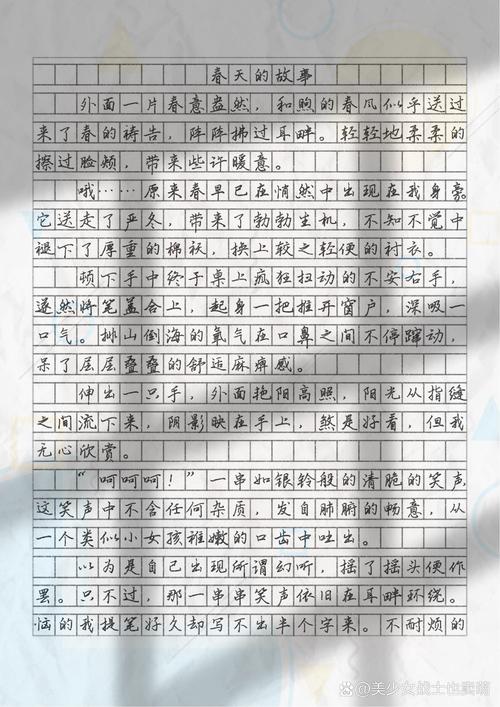 春天的故事
外面一片春意盎然，和煦的春风似乎送过
来了春的祷告，阵阵拂过耳畔。轻轻地柔柔的
擦过脸颊，带来些许暖意。
哦……原来春早已在悄然中出现在我身旁。
它送走了严冬，带来了勃勃生机，不知不觉中
褪下了厚重的棉袄，换上较之轻便的衬衣。
顿下手中终于桌上疯狂扫动的不安右手，
遂然将笔盖合上，起身一把推开窗户，深吸一
口气。排山倒海的氧气在口鼻之间不停蹿动，
呆了层层叠叠的舒适麻痹感。
伸出一只手，外面艳阳高照，阳光从指缝
之间流下来，阴影映在手上，煞是好看，但我
无心欣赏。
“呵呵呵！”一串如银铃般的清脆的笑声，
这笑声中不含任何杂质，发自肺腑的畅意，从
一个类似小女孩稚嫩的口齿中吐出。
以为是自己出现所谓幻听，摇了摇头便作
罢。只不过，那一串串笑声依旧在耳畔环绕。
恼的我提笔好久却写不出半个字来。不耐烦的
@美少女战士也卖萌